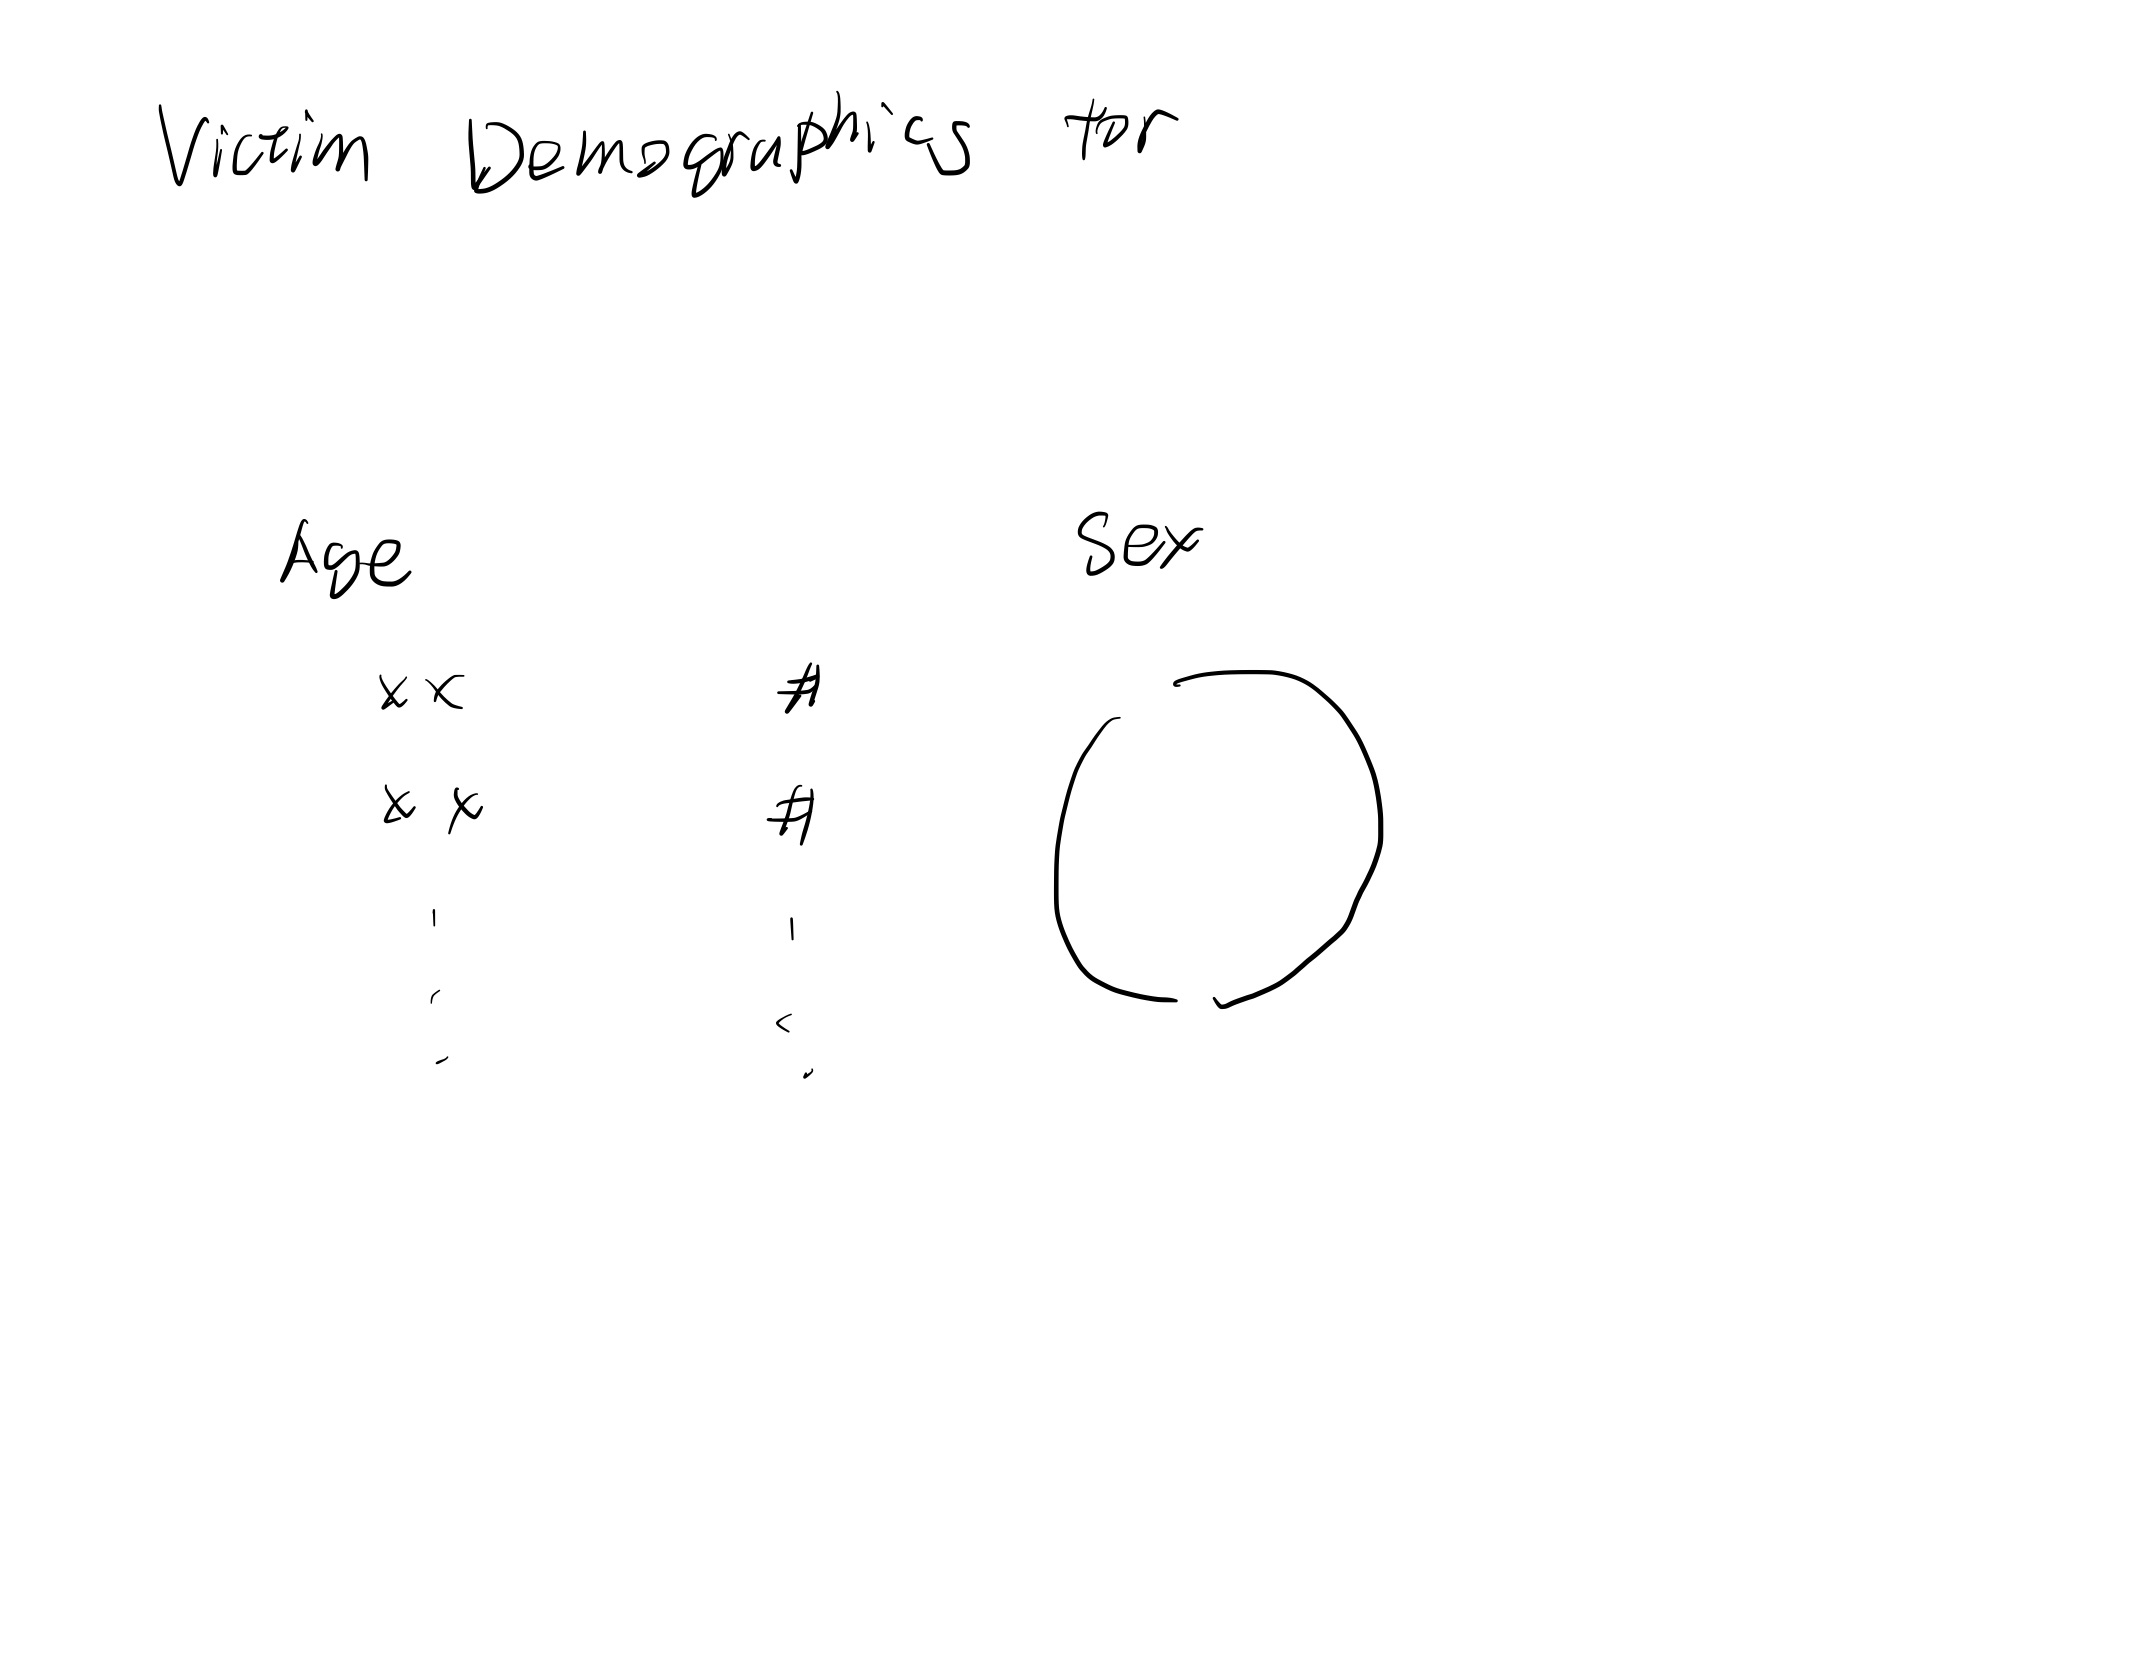 Victim Demographics for
Age Sex
xx #
xx #